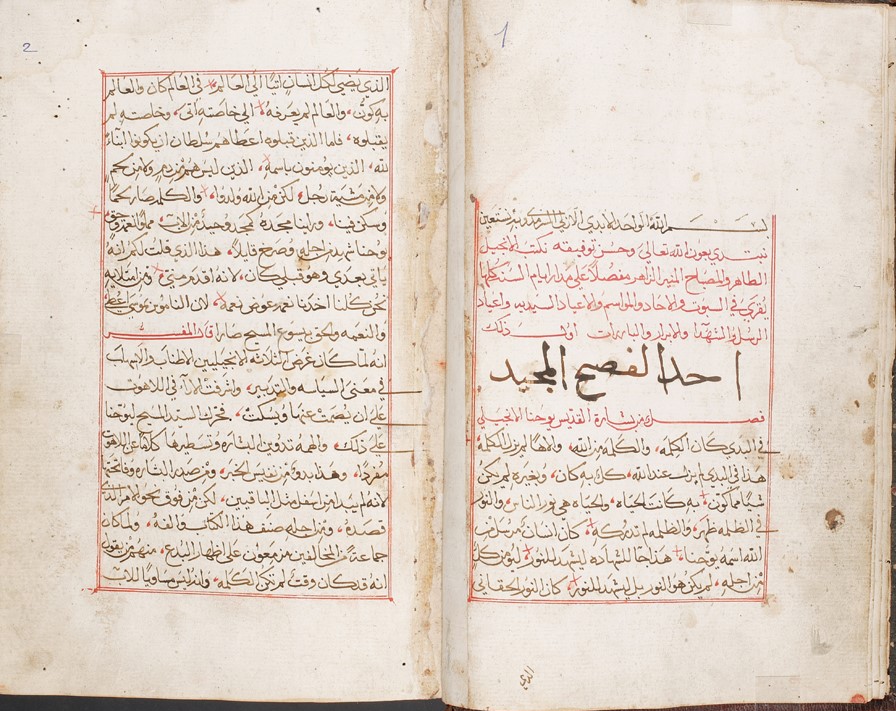 1
بسم الله الواحد الابدي الازلي السرمدي به نستعين
نبتدي بعون الله تعالى وحسن توفيقه نكتب الانجيل
الطاهر والمصباح المنير الزاهر مفصلاً على مدار ايام السنه كلها
يقري في السبوت والاحاد والمواسم والاعياد السيديه واعياد
الرسل والشهدا والابرار والبارات اول ذلك
احد الفصح المجيد
فصل من بشارة القديس يوحنا الانجيلي
في البدي كان الكلمه والكلمه عند الله والاها لم يزل الكلمه
هذا في البدي لم يزل عند الله كل به كان وبغيره لم يكن
شيا مما كون به كانت الحياه والحياه هي نور الناس والنور
في الظلمه ظهر والظلمه لم تدركه كان انسان مرسل من
الله اسمه يوحنا هذا جا للشهاده ليشهد للنور ليومن كل
من اجله لم يكن هو النور بل ليشهد للنور كان النور الحقاني
الذي
2
الذي يضي لكل انسان اتيا الى العالم في العالم كان والعالم
به كون والعالم لم يعرفه الى خاصته اتى وخاصته لم
يقبلوه فاما الذين قبلوه اعطاهم سلطان ان يكونوا ابنا
لله الذين يومنون باسمه الذين ليس هم من دم ولا من لحم
ولا من مشية رجل لكن من الله ولدوا والكلمه صار لحما
وسكن فينا وراينا مجده كمجد وحيد من الاب مملو النعمه وحق
يوحنا شهد من اجله وصرخ قايلا هذا الذي قلت لكم انه
ياتي بعدي وهو قبلي كان لانه اقدم مني ومن امتلايه
نحن كلنا اخذنا نعمه عوض نعمه لان الناموس بموسى اعطي
والنعمه والحق بيسوع المسيح صارا قال المفسر
انه لما كان غرض الثلاثه الانجيليين الاطناب والاسهاب
في معنى السياسه والتدبير واشرفت الارا في اللاهوت
على ان يصمت عنها ويسكت فحرك السيد المسيح ليوحنا
على ذلك والهمه تدوين البشاره وتسطيرها كلاما على اللاهوت
مفردا وهذا بدو من نفيس الخبر ومن صدر البشاره وفاتحتها
لانه لم يبدا من اسفل مثل الباقيين لكن من فوق نحو الامر الذي
قصده ومن اجله صنف هذا الكتاب والفه ولما كان
جماعة من المخالفين مزمعون على اظهار البدع منهم من يقول
انه قد كان وقت لم تكن الكلمه وانه ليس مساويا للاب